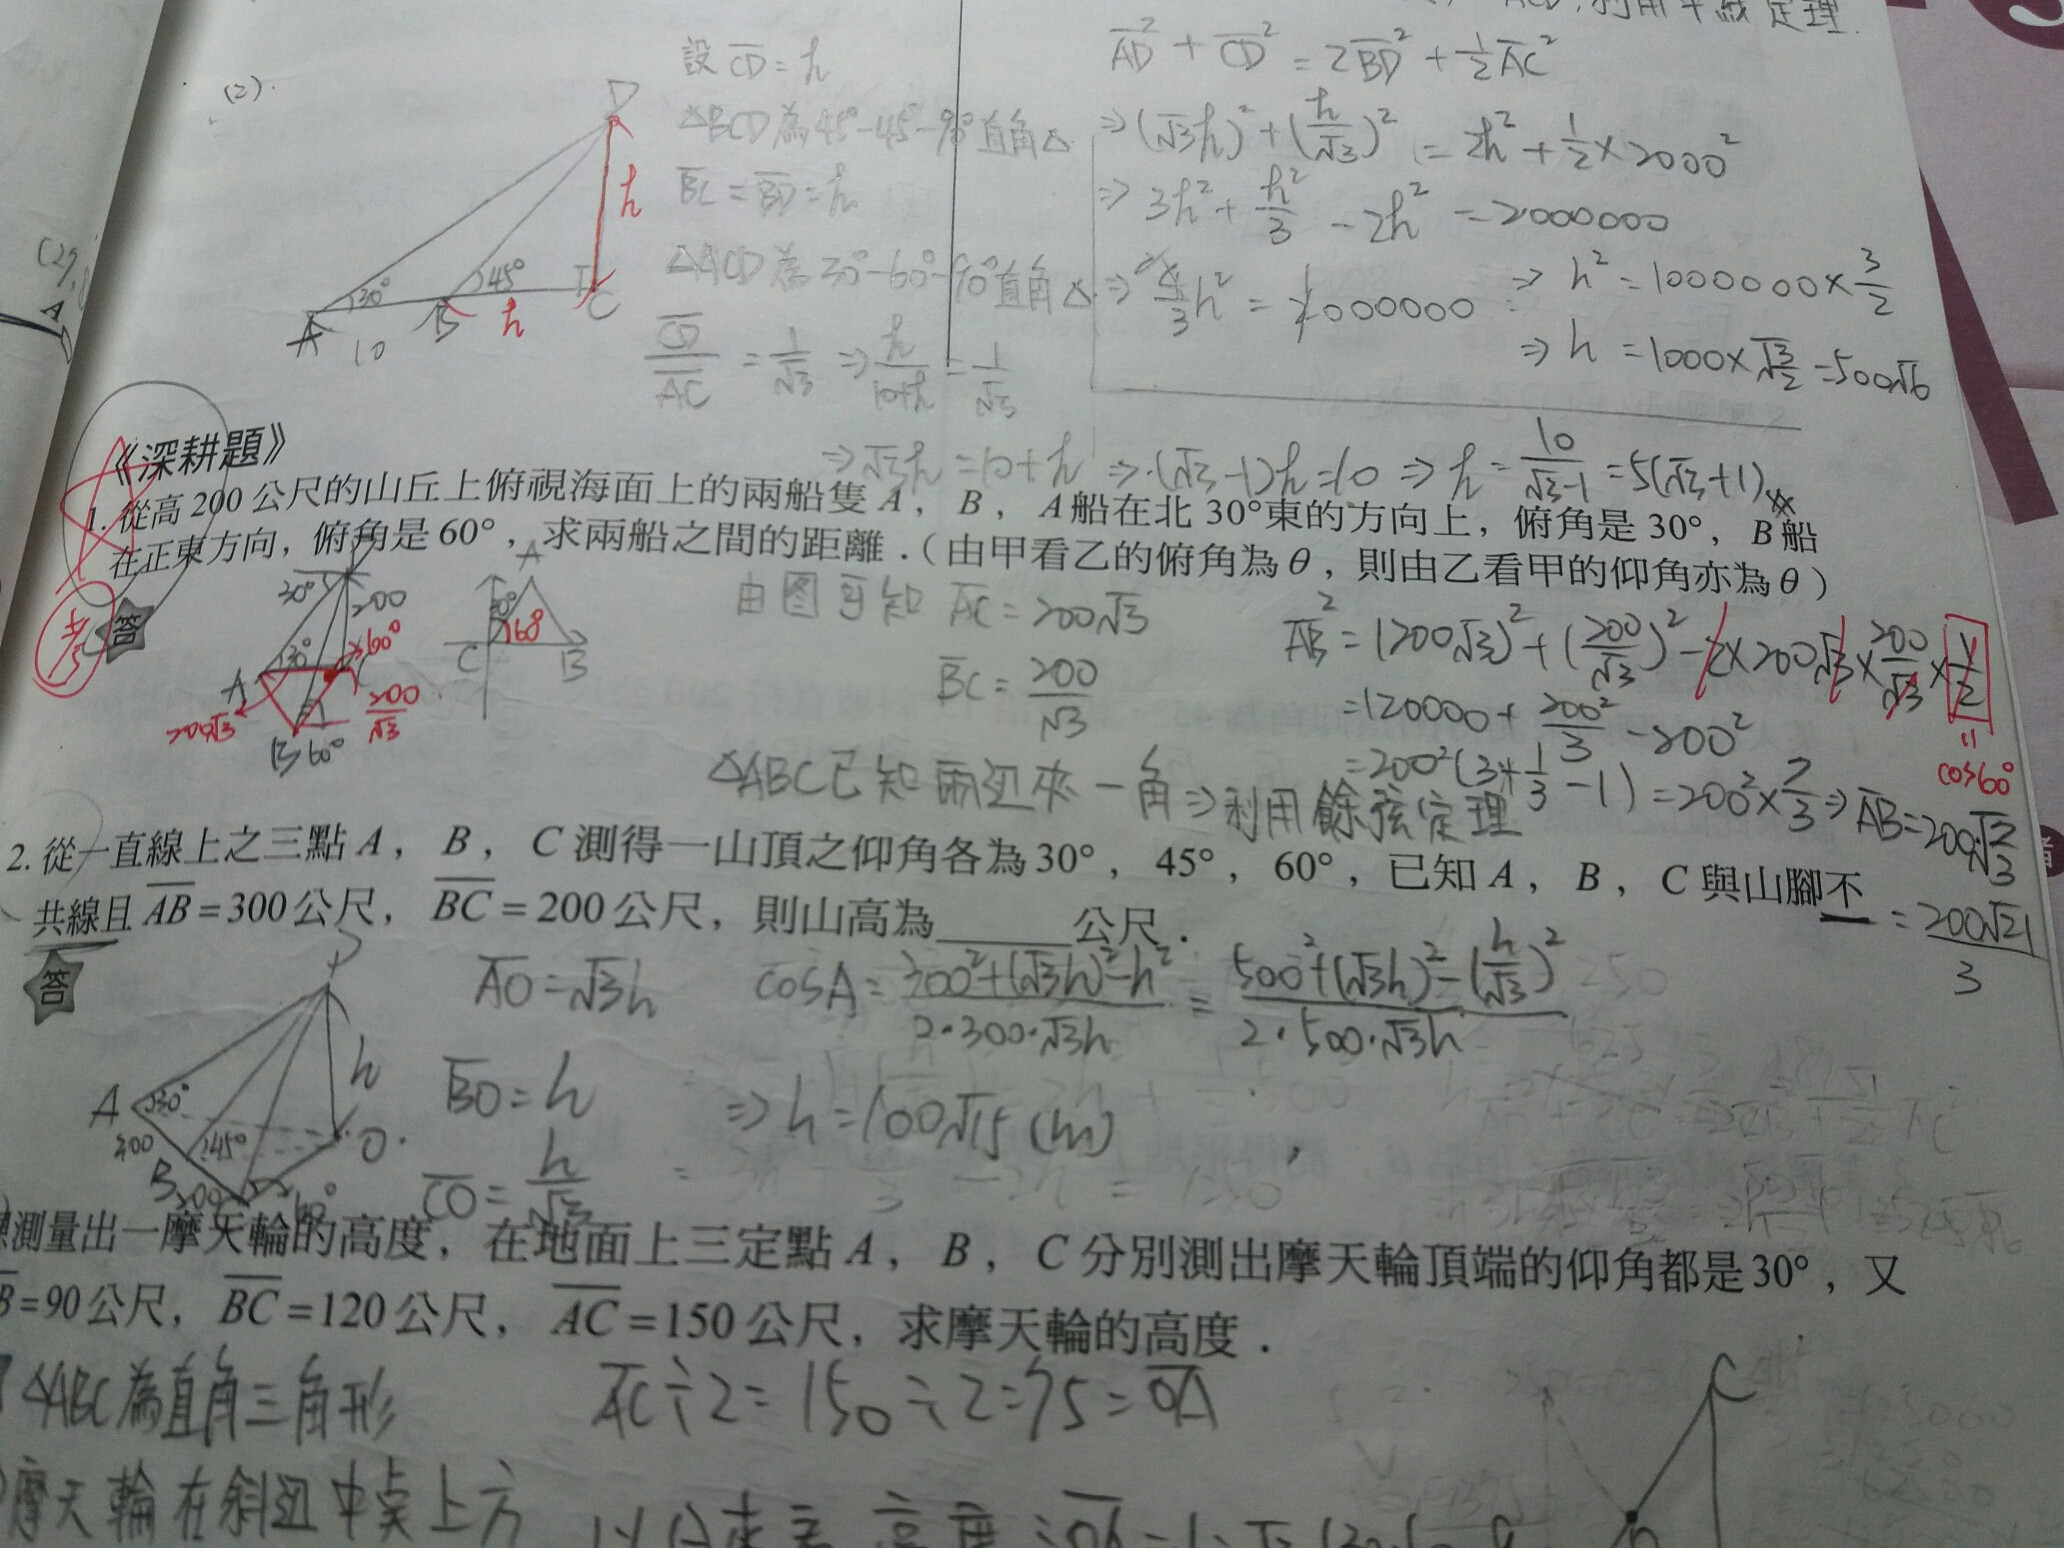 利用中線定理.
(2).
設 CD = h
△BCD為45°-45°-90°直角△
BC = BD = h
△ACD為30°-60°-90°直角△
CD/AC = 1/√3 ⇒ h/10+h = 1/√3
⇒ √3h = 10+h ⇒ (√3-1)h = 10 ⇒ h = 10/√3-1 = 5(√3+1)
D
h
30°
45°
A
10
B
h
C
AD² + CD² = 2BD² + 1/2 AC²
⇒ (√3h)² + (h/√3)² = 2h² + 1/2 × 2000²
⇒ 3h² + h²/3 - 2h² = 2000000
⇒ 4/3 h² = 2000000
⇒ h² = 1000000 × 3/2
⇒ h = 1000 × √3/2 = 500√6
《深耕題》
1. 從高 200 公尺的山丘上俯視海面上的兩船隻 A，B，A 船在北 30°東的方向上，俯角是 30°，B 船
在正東方向，俯角是 60°，求兩船之間的距離．（由甲看乙的俯角為θ，則由乙看甲的仰角亦為θ）
考
答
30°
200
60°
30°
A
200√3
B 60°
200/√3
A
30°
60°
C
B
由图可知 AC = 200√3
BC = 200/√3
△ABC已知兩边夾一角⇒利用餘弦定理
AB² = (200√3)² + (200/√3)² - 2×200√3×200/√3×1/2
cos60°
= 120000 + 200²/3 - 200²
= 200²(3+1/3-1) = 200²×7/3 ⇒ AB = 200√7/3
= 200√21/3
2. 從一直線上之三點 A，B，C 測得一山頂之仰角各為 30°，45°，60°，已知 A，B，C 與山腳不
共線且 AB = 300 公尺，BC = 200 公尺，則山高為______公尺．
答
A
30°
300
B
45°
200
60°
h
O
AO = √3h
BO = h
CO = h/√3
cosA = 300²+(√3h)²-h²/2·300·√3h = 500²+(√3h)²-(h/√3)²/2·500·√3h
⇒ h = 100√15 (m)
測量出一摩天輪的高度，在地面上三定點 A，B，C 分別測出摩天輪頂端的仰角都是 30°，又
B = 90 公尺，BC = 120 公尺，AC = 150 公尺，求摩天輪的高度．
△ABC為直角三角形
AC÷2 = 150÷2 = 75 = OA
摩天輪在斜边中點上方
C